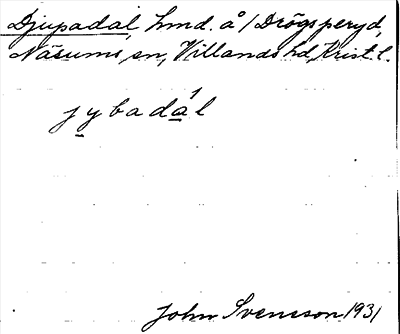 Djupadal, hmd. å / Drögsperyd,
Näsums sn, Villands hd, Krist. l.
jybadál
John Svensson 1931